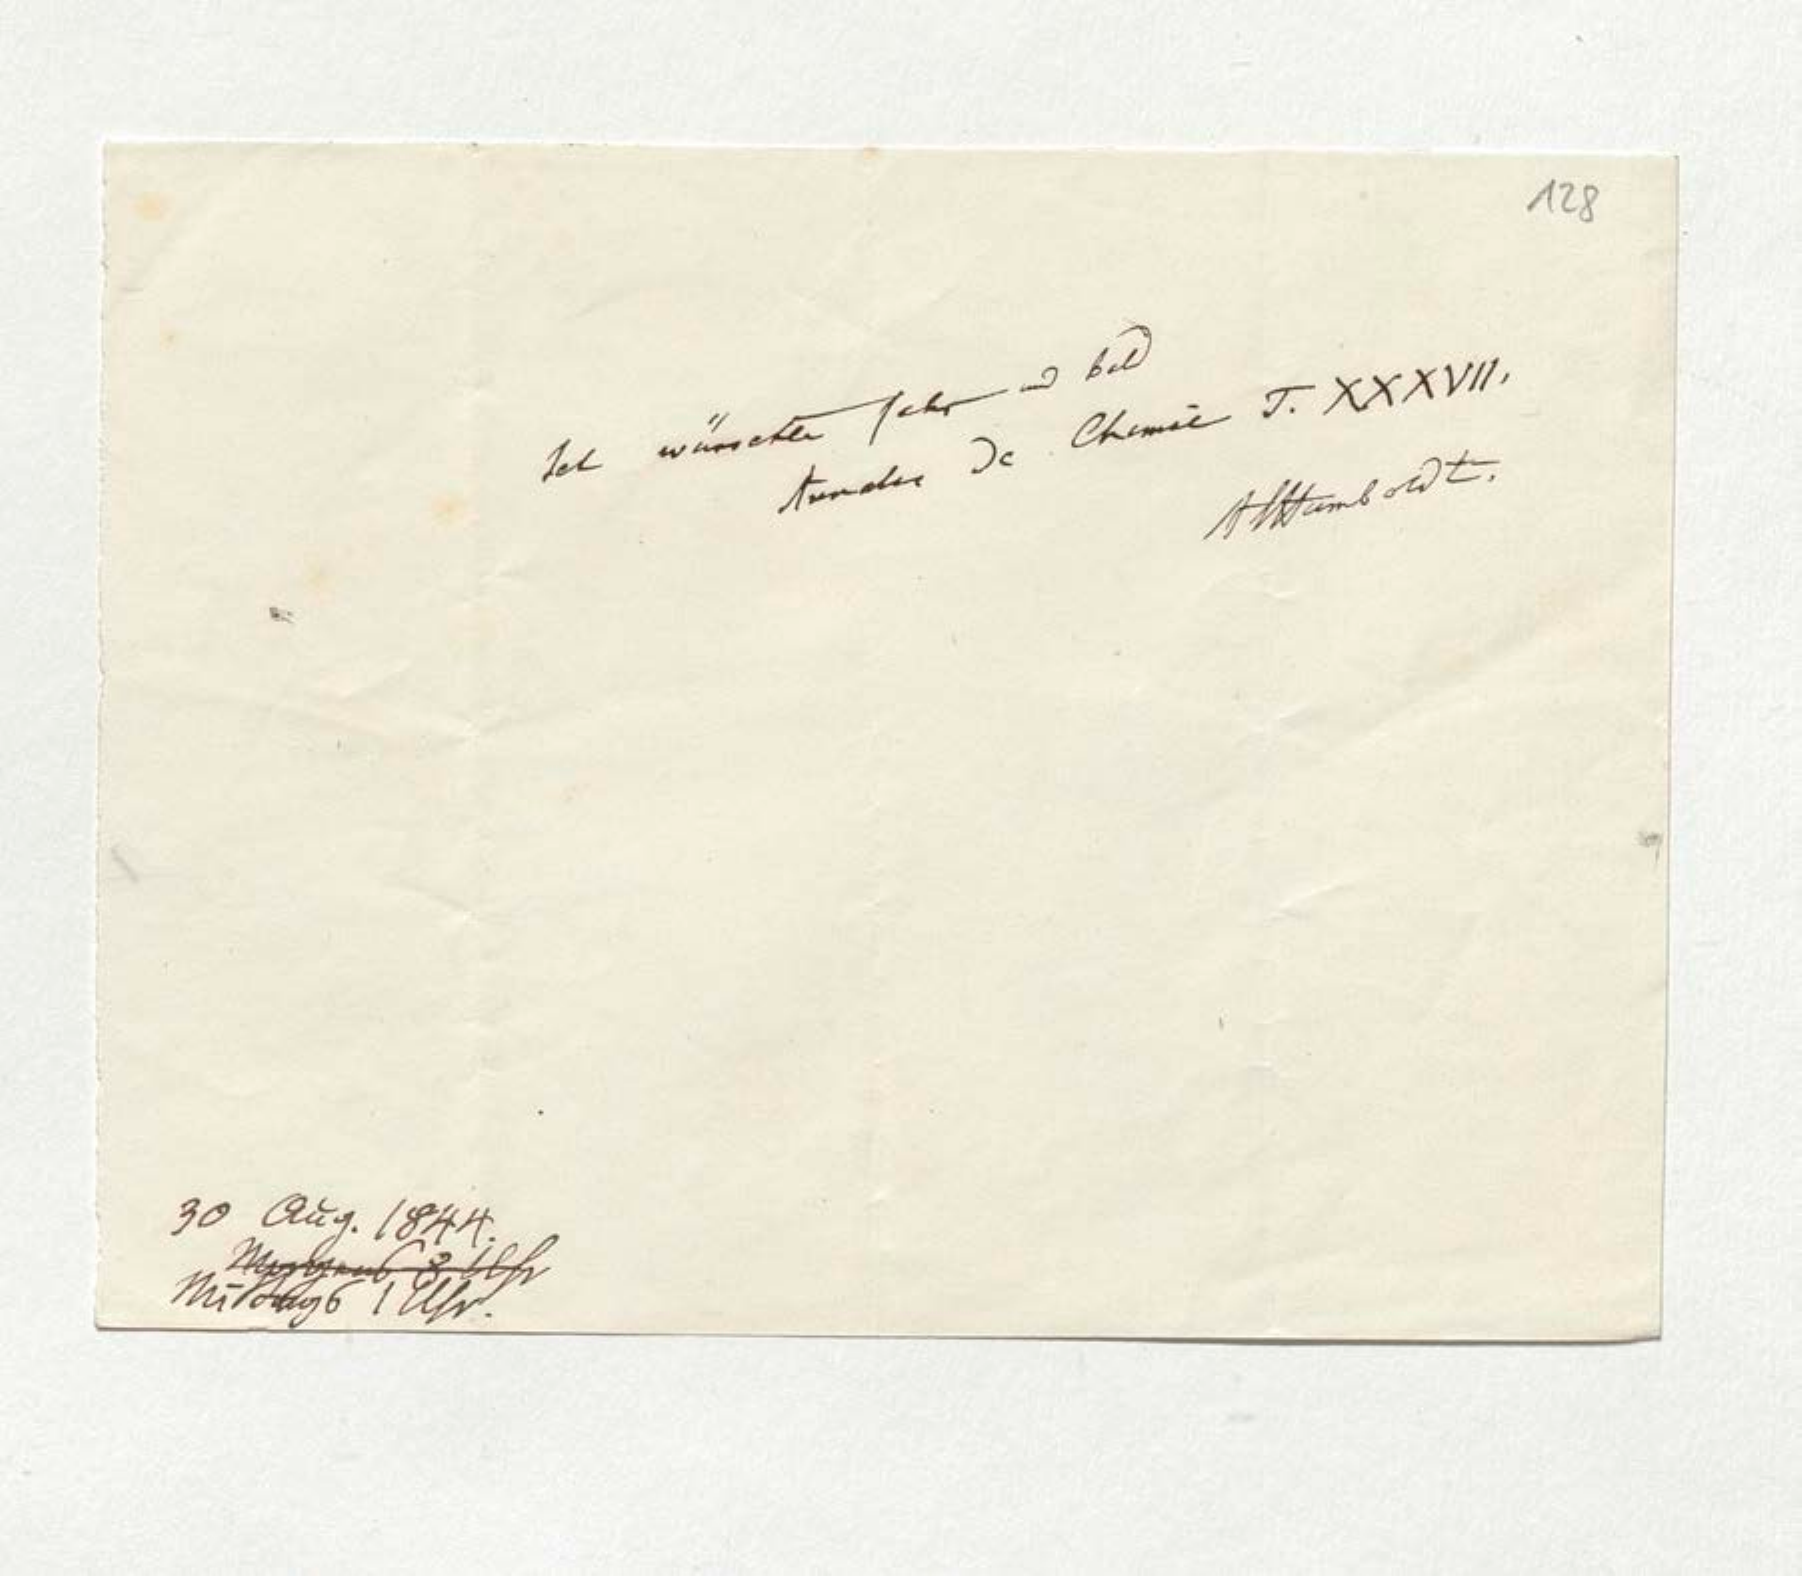 128
Ich wünschte sehr und bald
Annales de Chimie T. XXXVII.
AlHumboldt.
30 Aug. 1844.
Morgens 8 Uhr
Mittags 1 Uhr.